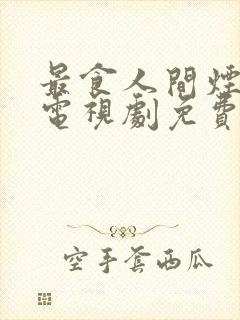 最食人間煙
電視劇免費
空手套西瓜